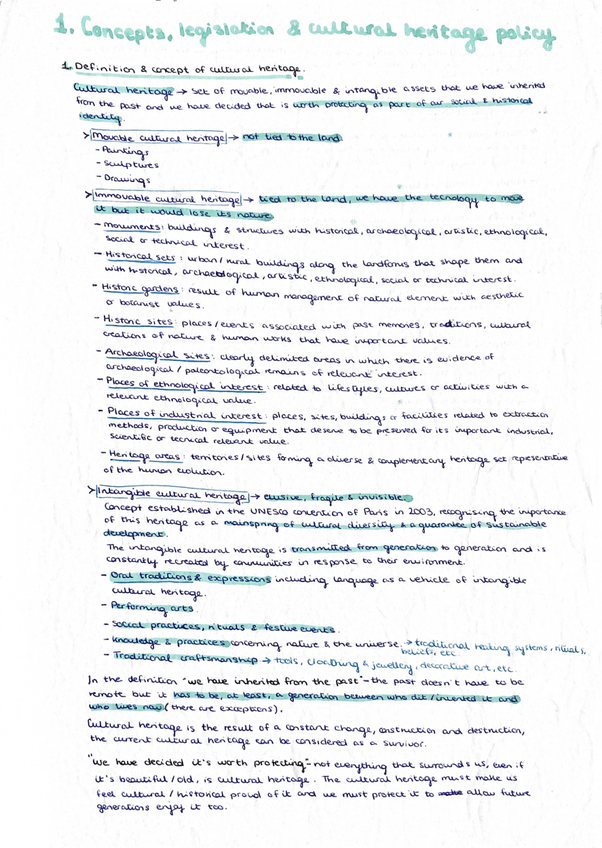 1. Concepts, legislation & cultural heritage policy
1. Definition & concept of cultural heritage.
Cultural heritage → set of movable, immovable & intangible assets that we have inherited
from the past and we have decided that is worth protecting as part of our social & historical
identity.
> Movable cultural heritage → not tied to the land.
- Paintings
- Sculptures
- Drawings
> Immovable cultural heritage → tied to the land, we have the tecnology to move
it but it would lose its nature
- Monuments: buildings & structures with historical, archaeological, artistic, ethnological,
social or technical interest.
- Historical sets: urban/rural buildings along the landforms that shape them and
with historical, archaeological, artistic, ethnological, social or technical interest.
- Historic gardens: result of human management of natural element with aesthetic
or botanist values.
- Historic sites: places/events associated with past memories, traditions, cultural
creations of nature & human works that have important values.
- Archaeological sites: clearly delimited areas in which there is evidence of
archaeological / paleontological remains of relevant interest.
- Places of ethnological interest: related to lifestyles, cultures or activities with a
relevant ethnological value.
- Places of industrial interest: places, sites, buildings or facilities related to extraction
methods, production or equipment that deserve to be preserved for its important industrial,
scientific or tecnical relevant value.
- Heritage areas: territories/sites forming a diverse & complementary heritage set representative
of the human evolution.
> Intangible cultural heritage → elusive, fragile & invisible.
Concept established in the UNESCO convention of Paris in 2003, recognising the importance
of this heritage as a mainspring of cultural diversity & a guarantee of sustainable
development.
The intangible cultural heritage is transmitted from generation to generation and is
constantly recreated by communities in response to their environment.
- Oral traditions & expressions including language as a vehicle of intangible
cultural heritage.
- Performing arts.
- Social practices, rituals & festive events.
- Knowledge & practices concerning nature & the universe. → traditional healing systems, rituals,
beliefs, etc.
- Traditional craftsmanship → tools, cloothing & jewellry, decorative art, etc.
In the definition "we have inherited from the past" - the past doesn't have to be
remote but it has to be, at least, a generation between who did/invented it and
who lives now (there are exceptions).
Cultural heritage is the result of a constant change, construction and destruction,
the current cultural heritage can be considered as a survivor.
"We have decided it's worth protecting" - not everything that surrounds us, even if
it's beautiful/old, is cultural heritage. The cultural heritage must make us
feel cultural/historical proud of it and we must protect it to allow future
generations enjoy it too.